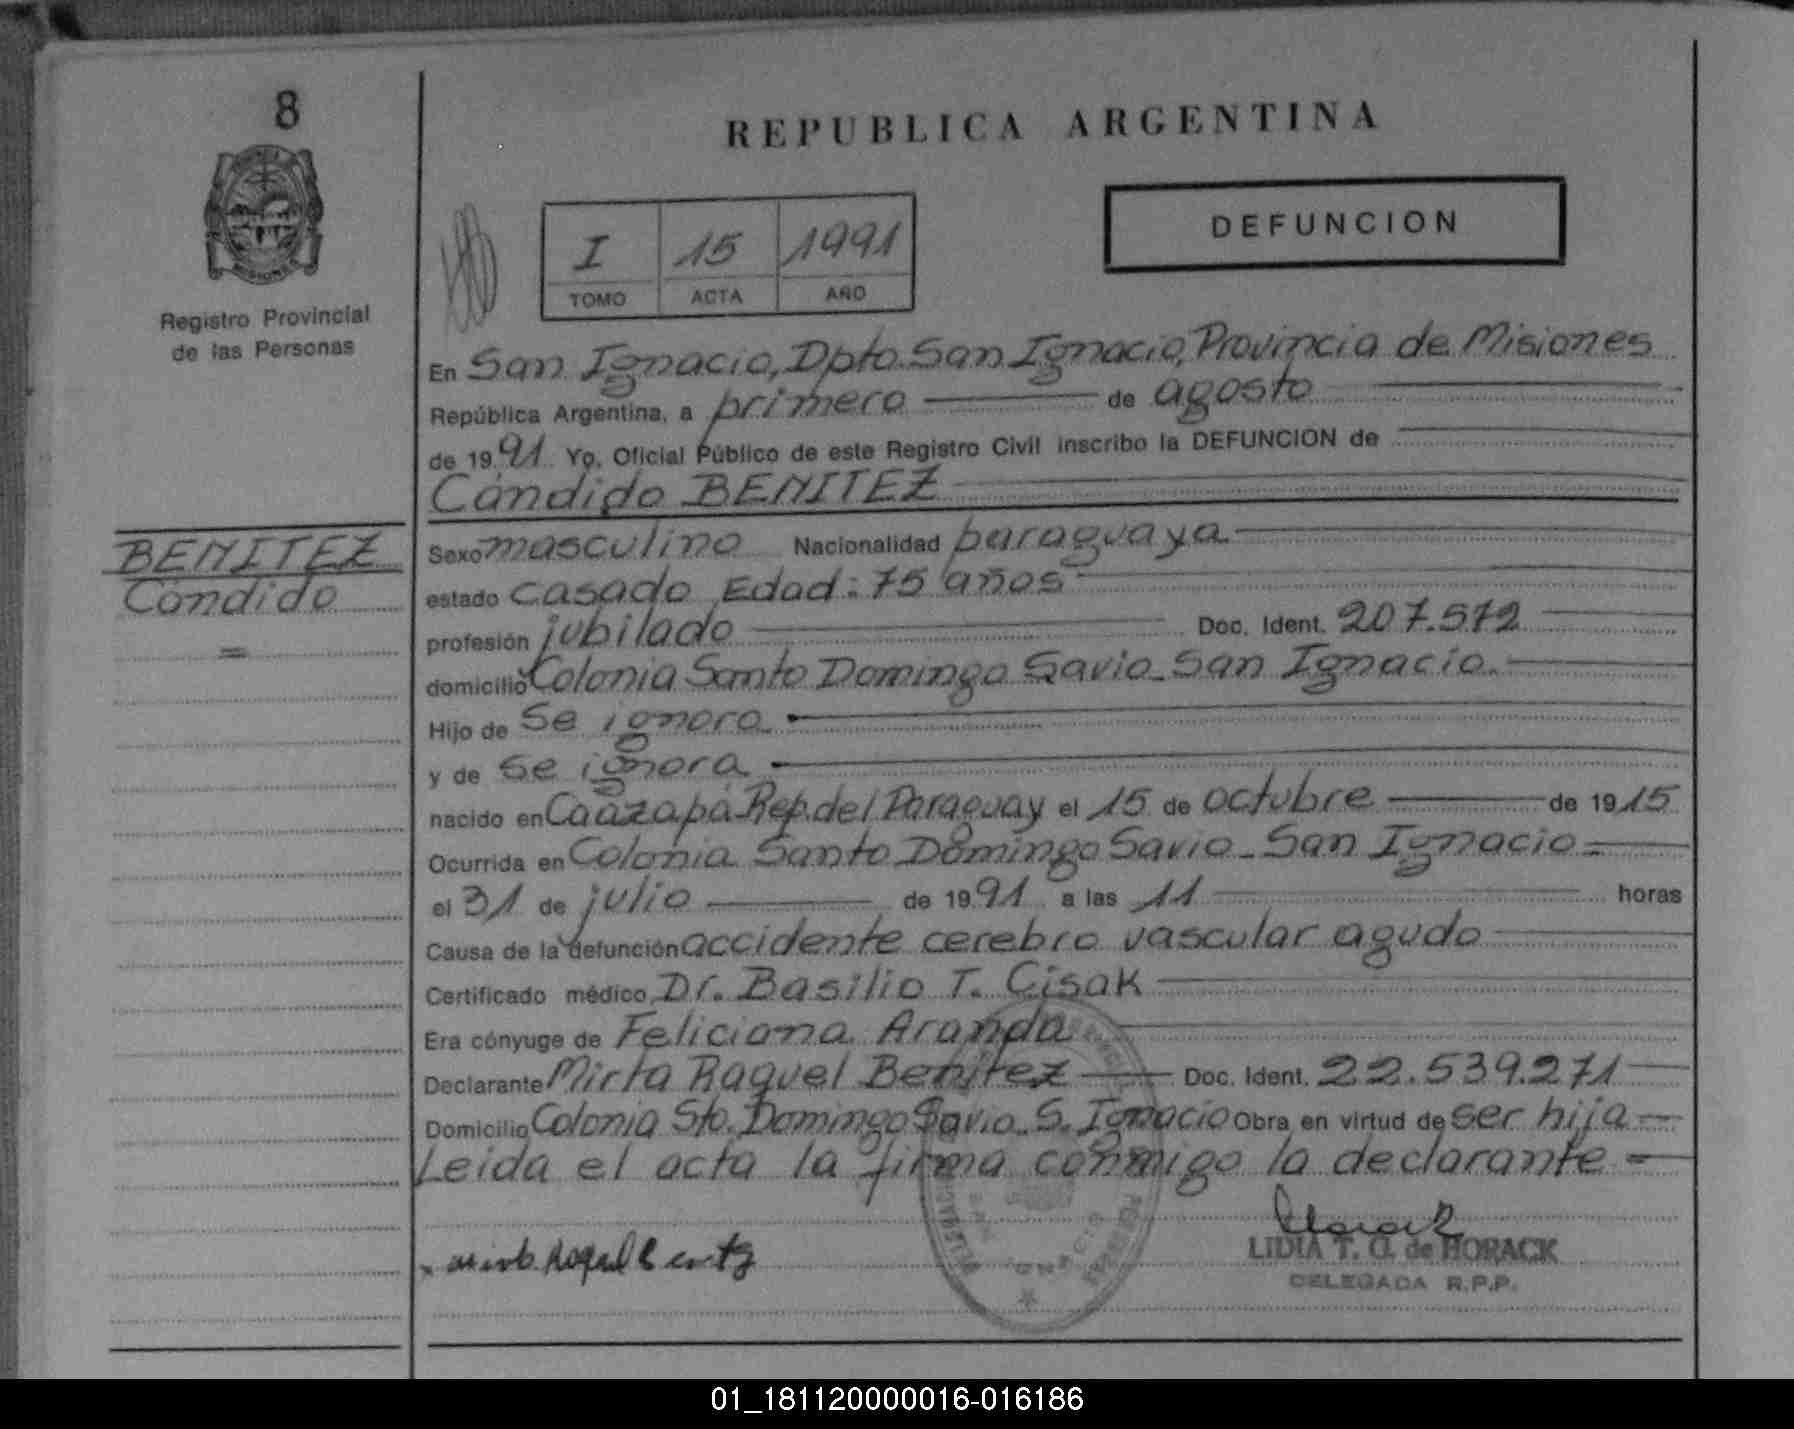 8
REPUBLICA ARGENTINA
DEFUNCION
I 15 1991
TOMO ACTA AÑO
Registro Provincial
de las Personas
En San Ignacio, Dpto. San Ignacio, Provincia de Misiones
República Argentina, a primero de agosto
de 1991 Yo, Oficial Público de este Registro Civil inscribo la DEFUNCION de
Cándido BENITEZ
BENITEZ
Cándido
=
Sexo masculino Nacionalidad paraguaya
estado casado Edad: 75 años
profesión jubilado Doc. Ident. 207.572
domicilio Colonia Santo Domingo Savio - San Ignacio.
Hijo de Se ignora
y de se ignora
nacido en Caazapá-Rep. del Paraguay el 15 de octubre de 1915
Ocurrida en Colonia Santo Domingo Savio - San Ignacio =
el 31 de julio de 1991 a las 11 horas
Causa de la defunción accidente cerebro vascular agudo
Certificado médico Dr. Basilio T. Cisak
Era cónyuge de Feliciana Aranda
Declarante Mirta Raquel Benitez Doc. Ident. 22.539.271
Domicilio Colonia Sto. Domingo Savio - S. Ignacio Obra en virtud de ser hija
Leida el acta la firma conmigo la declarante =
LIDIA T. O. de HORACK
DELEGADA R.P.P.
01_181120000016-016186